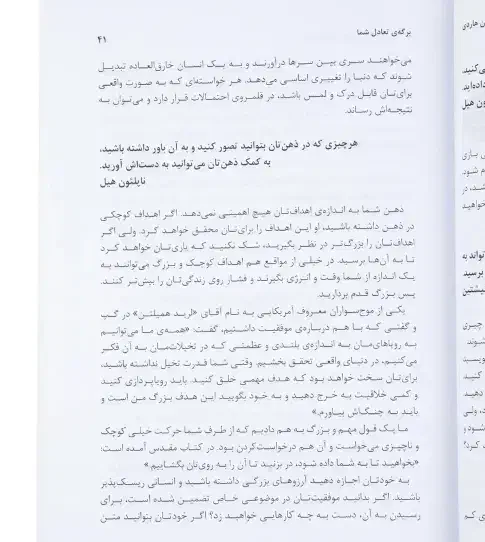 برگه‌ی تعادل شما
۴۱
می‌خواهند سری بین سرها درآورند و به یک انسان خارق‌العاده تبدیل
شوند که دنیا را تغییری اساسی می‌دهد. هر خواسته‌ای که به صورت واقعی
برای‌تان قابل درک و لمس باشد، در قلمروی احتمالات قرار دارد و می‌توان به
نتیجه‌اش رساند.
هرچیزی که در ذهن‌تان بتوانید تصور کنید و به آن باور داشته باشید،
به کمک ذهن‌تان می‌توانید به دست‌اش آورید.
ناپلئون هیل
ذهن شما به اندازه‌ی اهداف‌تان هیچ اهمیتی نمی‌دهد. اگر اهداف کوچکی
در ذهن داشته باشید، او این اهداف را برای‌تان محقق خواهد کرد. ولی اگر
اهداف‌تان را بزرگ‌تر در نظر بگیرید، شک نکنید که یاری‌تان خواهد کرد
تا به آن‌ها برسید. در خیلی از مواقع هم اهداف کوچک و بزرگ می‌توانند به
یک اندازه از شما وقت و انرژی بگیرند و فشار روی زندگی‌تان را بیش‌تر کنند.
پس بزرگ قدم بردارید.
یکی از موج‌سواران معروف آمریکایی به نام آقای «لرید همیلتن» در گپ
و گفتی که با هم درباره‌ی موفقیت داشتیم، گفت: «همه‌ی ما می‌توانیم
به رویاهای‌مان به اندازه‌ی بلندی و عظمتی که در تخیلات‌مان به آن فکر
می‌کنیم، در دنیای واقعی تحقق بخشیم. وقتی شما قدرت تخیل نداشته باشید،
برای‌تان سخت خواهد بود که هدف مهمی خلق کنید. باید رویاپردازی کنید
و کمی خلاقیت به خرج دهید و به خود بگویید این هدف بزرگ من است و
باید به چنگ‌اش بیاورم.»
ما یک قول مهم و بزرگ به هم دادیم که از طرف شما حرکت خیلی کوچک
و ناچیزی می‌خواست و آن هم درخواست‌کردن بود. در کتاب مقدس آمده است:
«بخواهید تا به شما داده شود، در بزنید تا آن را به روی‌تان بگشاییم.»
به خودتان اجازه دهید آرزوهای بزرگی داشته باشید و انسانی ریسک‌پذیر
باشید. اگر بدانید موفقیت‌تان در موضوعی خاص تضمین شده است، برای
رسیدن به آن، دست به چه کارهایی خواهید زد؟ اگر خودتان بتوانید متن